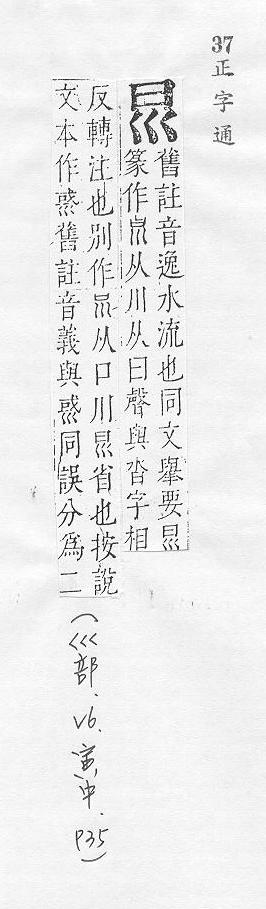 37正字通
舊註音逸水流也同文舉要
篆作从川从曰聲與沓字相
反轉注也別作从口川省也按說
文本作舊註音義與同誤分為二
(巛部．V6．寅中．P35)